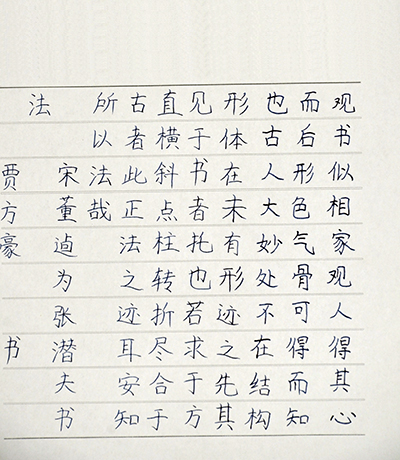 观书似相家观人得其心
而后形色气骨可得而知
也古人大妙处不在结构
形体在未有形迹之先其
见于书者托也若求于方
直横斜点柱转折尽合于
古者此正法之迹耳安知
所以法哉
宋董逌为张潜夫书
法
贾方豪 书